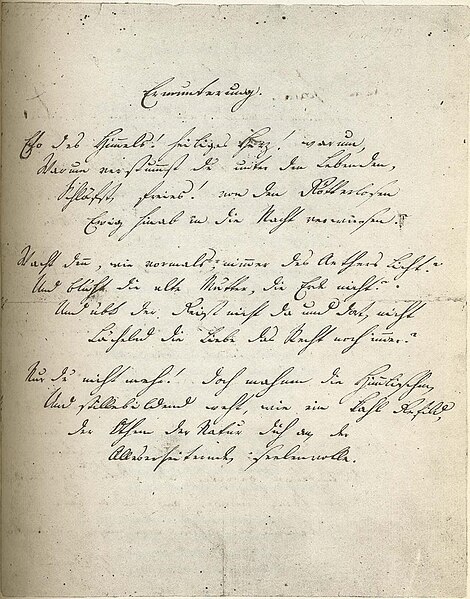 Ermunterung.
Echo des Himmels! heiliges Herz! warum,
Warum verstummst du unter den Lebenden,
Schläfst, freies! von den Götterlosen
Ewig hinab in die Nacht verwiesen?
Wacht denn, wie vormals, nimmer des Aethers Licht?
Und blüht die alte Mutter, die Erde nicht?
Und übt der Geist nicht da und dort, nicht
Lächelnd die Liebe das Recht noch immer?
Nur du nicht mehr! doch mahnen die Himmlischen,
Und stillebildend weht, wie ein kahl Gefild,
Der Othem der Natur dich an, der
Alleserheiternde, seelenvolle.